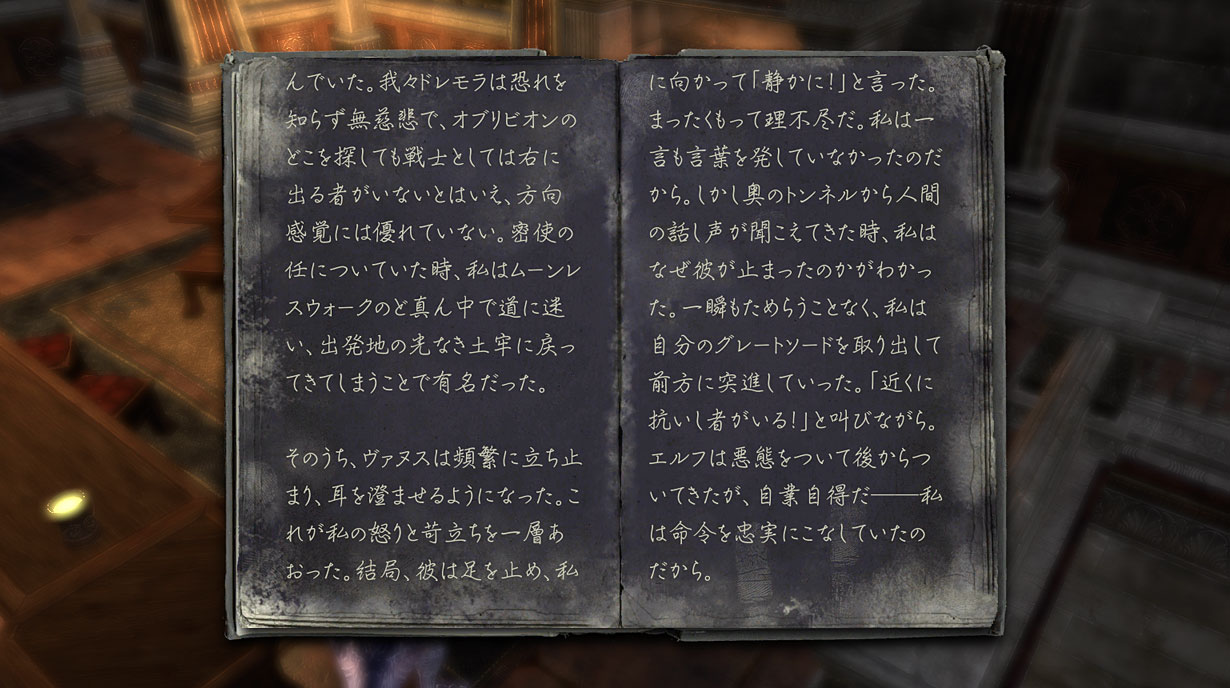 んでいた。我々ドレモラは恐れを
知らず無慈悲で、オブリビオンの
どこを探しても戦士としては右に
出る者がいないとはいえ、方向
感覚には優れていない。密使の
任についていた時、私はムーンレ
スウォークのど真ん中で道に迷
い、出発地の光なき土牢に戻っ
てきてしまうことで有名だった。
そのうち、ヴァヌスは頻繁に立ち止
まり、耳を澄ませるようになった。こ
れが私の怒りと苛立ちを一層あ
おった。結局、彼は足を止め、私
に向かって「静かに!」と言った。
まったくもって理不尽だ。私は一
言も言葉を発していなかったのだ
から。しかし奥のトンネルから人間
の話し声が聞こえてきた時、私は
なぜ彼が止まったのかがわかっ
た。一瞬もためらうことなく、私は
自分のグレートソードを取り出して
前方に突進していった。「近くに
抗いし者がいる!」と叫びながら。
エルフは悪態をついて後からつ
いてきたが、自業自得だ――私
は命令を忠実にこなしていたの
だから。